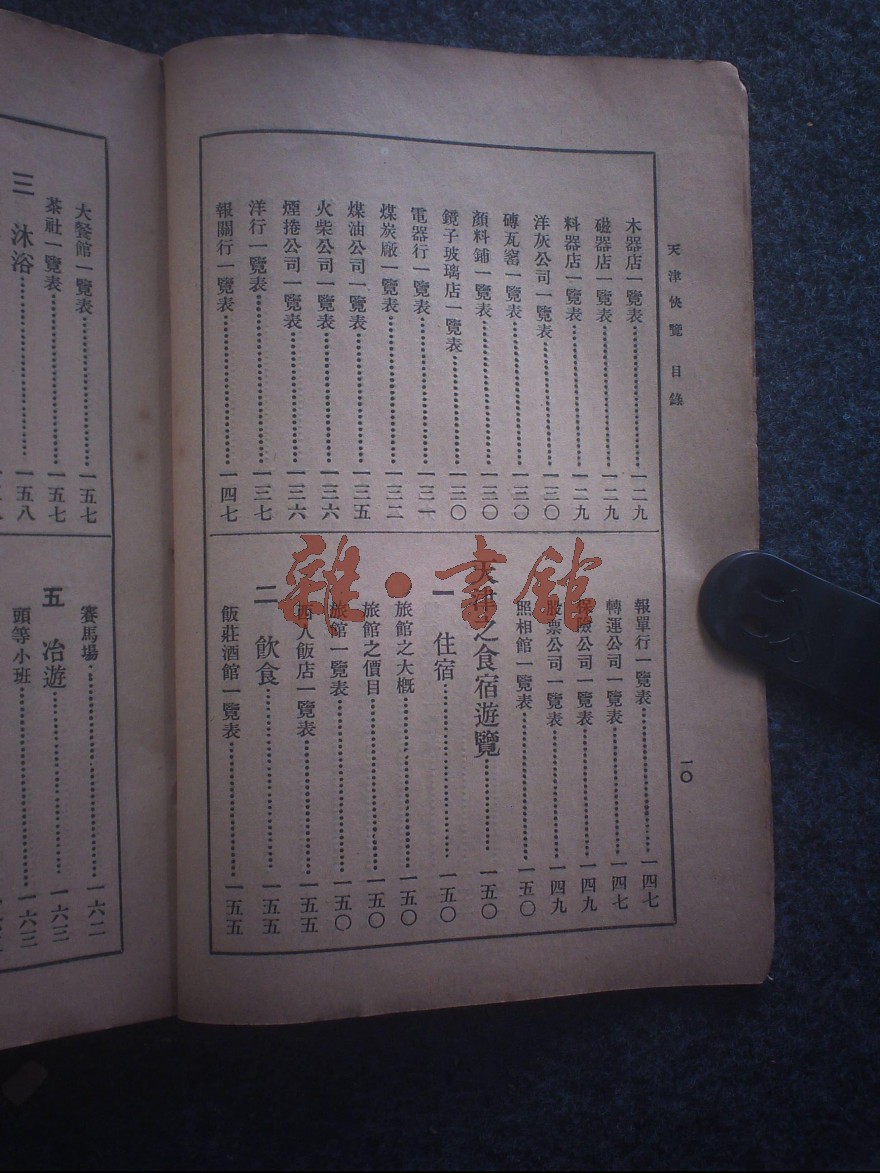 天津快覽 目錄
一〇
木器店一覽表……一二九
磁器店一覽表……一二九
料器店一覽表……一二九
洋灰公司一覽表……一三〇
磚瓦窰一覽表……一三〇
顏料鋪一覽表……一三〇
鏡子玻璃店一覽表……一三〇
電器行一覽表……一三一
煤炭廠一覽表……一三二
煤油公司一覽表……一三五
火柴公司一覽表……一三六
煙捲公司一覽表……一三六
洋行一覽表……一三七
報關行一覽表……一四七
報單行一覽表……一四七
轉運公司一覽表……一四七
保險公司一覽表……一四九
股票公司一覽表……一四九
照相館一覽表……一五〇
天津之食宿遊覽……一五〇
一 住宿……一五〇
旅館之大概……一五〇
旅館之價目……一五〇
旅館一覽表……一五〇
西人飯店一覽表……一五五
二 飲食……一五五
飯莊酒館一覽表……一五五
大餐館一覽表……一五七
茶社一覽表……一五七
三 沐浴……一五八
賽馬場……一六二
五 冶遊……一六三
頭等小班……一六三
雜·書館